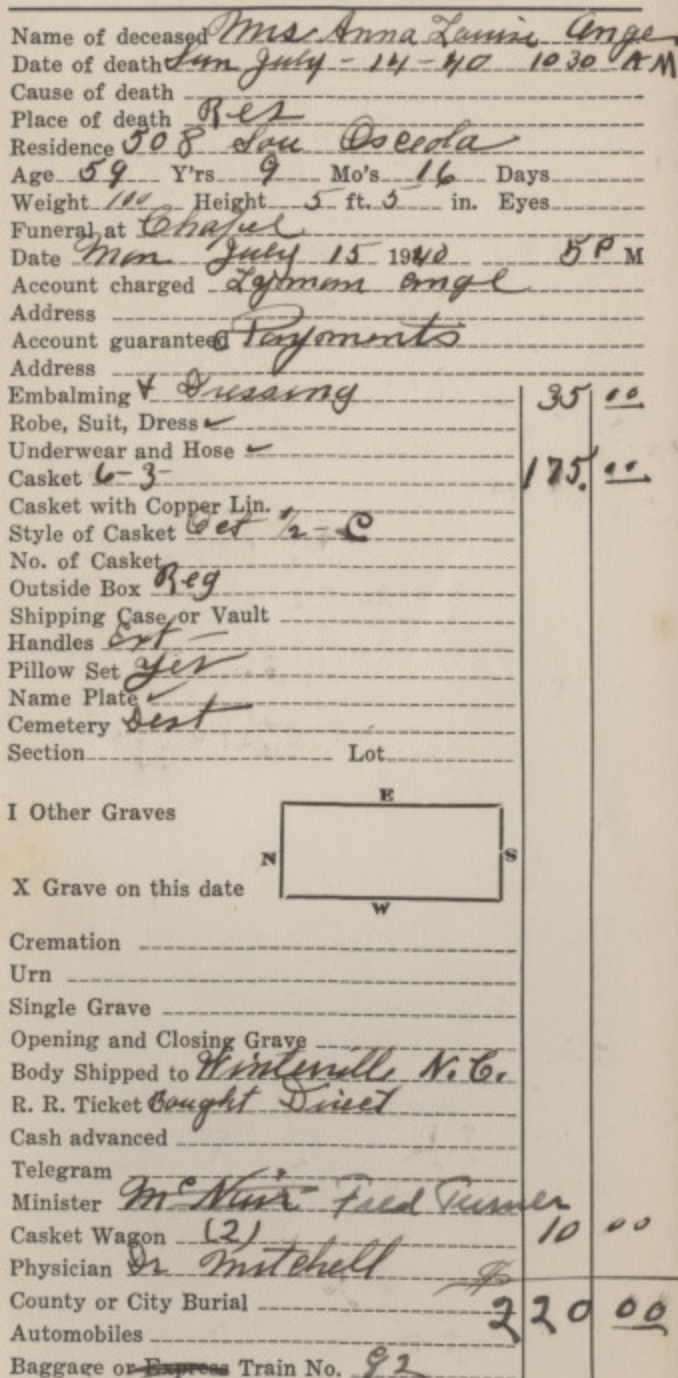 Name of deceased Mrs Anna Louise Ange
Date of death Sun July - 14 - 40 10 30 AM
Cause of death
Place of death Res
Residence 508 Sou Osceola
Age 59 Y'rs 9 Mo's 16 Days
Weight 100 Height 5 ft. 5 in. Eyes
Funeral at Chapel
Date Mon July 15 1940 5 P M
Account charged Lyman Ange
Address
Account guaranteed Payments
Address
Embalming & Dressing 35 00
Robe, Suit, Dress ✓
Underwear and Hose ✓
Casket 6-3- 175. 00
Casket with Copper Lin.
Style of Casket Oct 1/2 - C
No. of Casket
Outside Box Reg
Shipping Case or Vault
Handles Ext -
Pillow Set Yes
Name Plate ✓
Cemetery Dest
Section Lot
E
I Other Graves
N S
X Grave on this date
W
Cremation
Urn
Single Grave
Opening and Closing Grave
Body Shipped to Winterville N.C.
R. R. Ticket Bought Direct
Cash advanced
Telegram
Minister Fred Turner
Casket Wagon (2) 10 00
Physician Dr Mitchell
County or City Burial 220 00
Automobiles
Baggage or Express Train No. 92